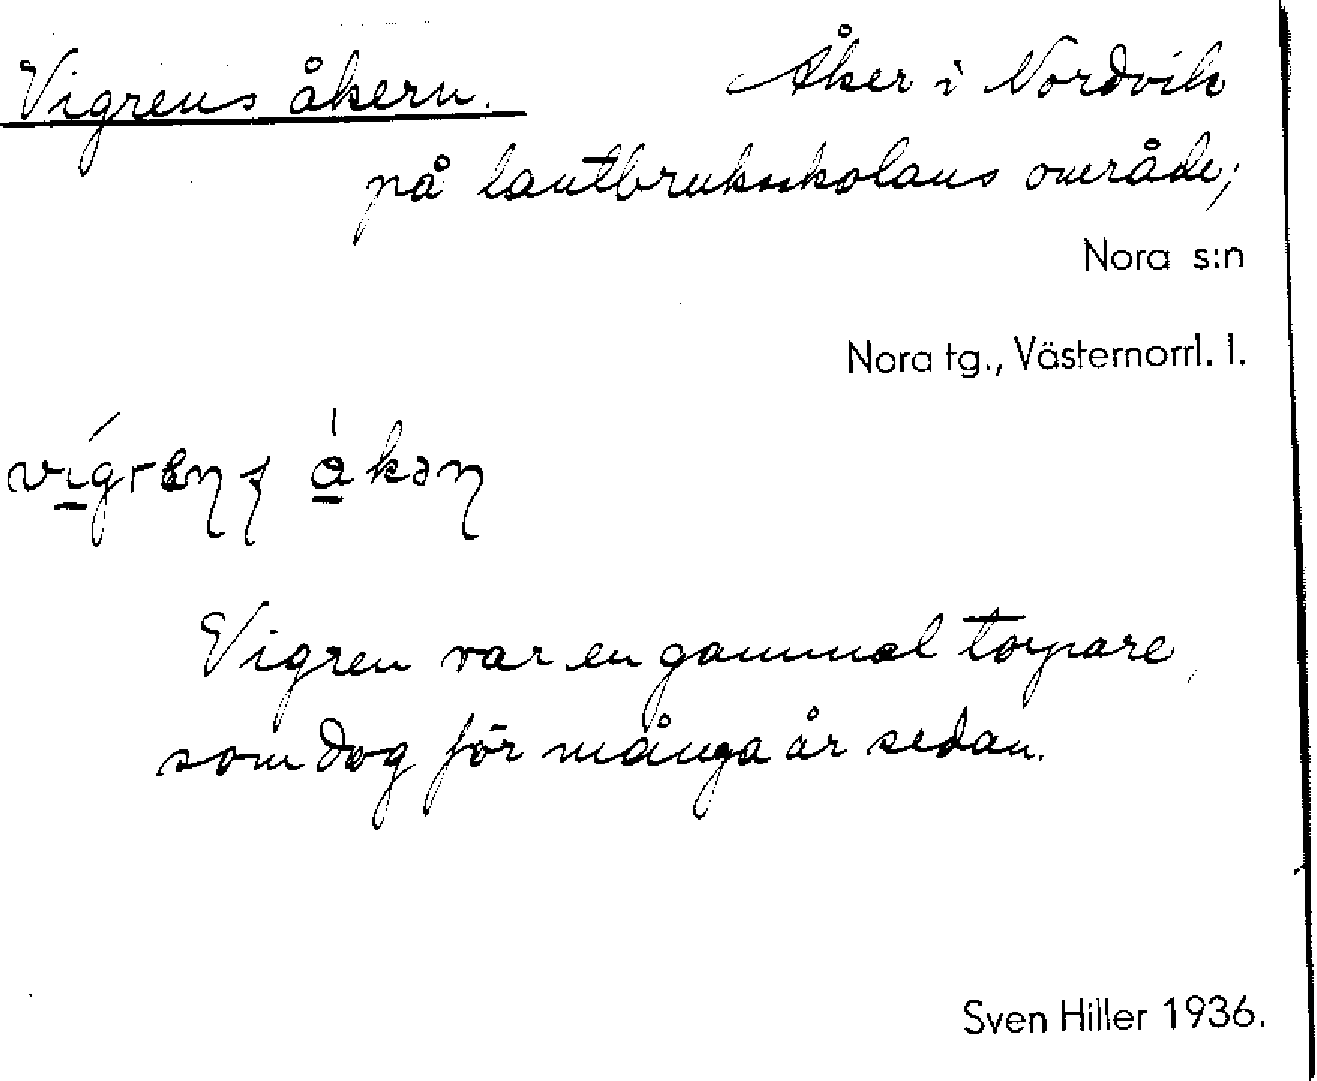 Vigrens åkern. Åker i Nordvik
på lantbruksskolans område;
Nora s:n
Nora tg., Västernorrl. l.
Vigren var en gammal torpare,
som dog för många år sedan.
Sven Hiller 1936.